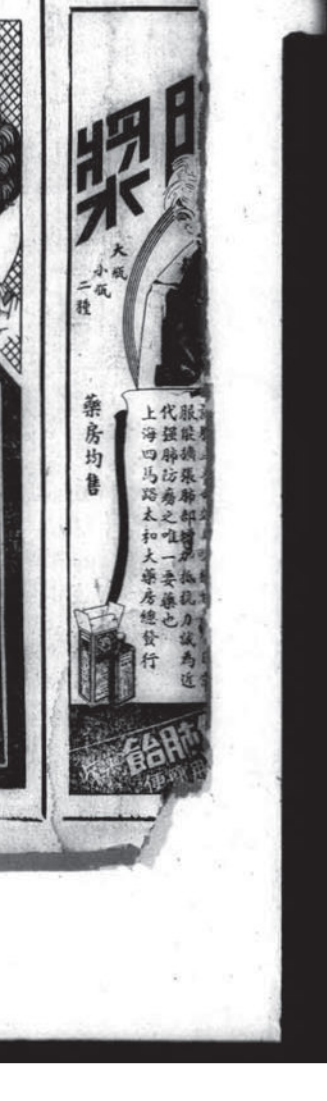 漿
大瓶
小瓶
二種
服能擴張肺部增加抵抗力誠為近
代强肺防癆之唯一要藥也
上海四馬路太和大藥房總發行
藥房均售
肺飴